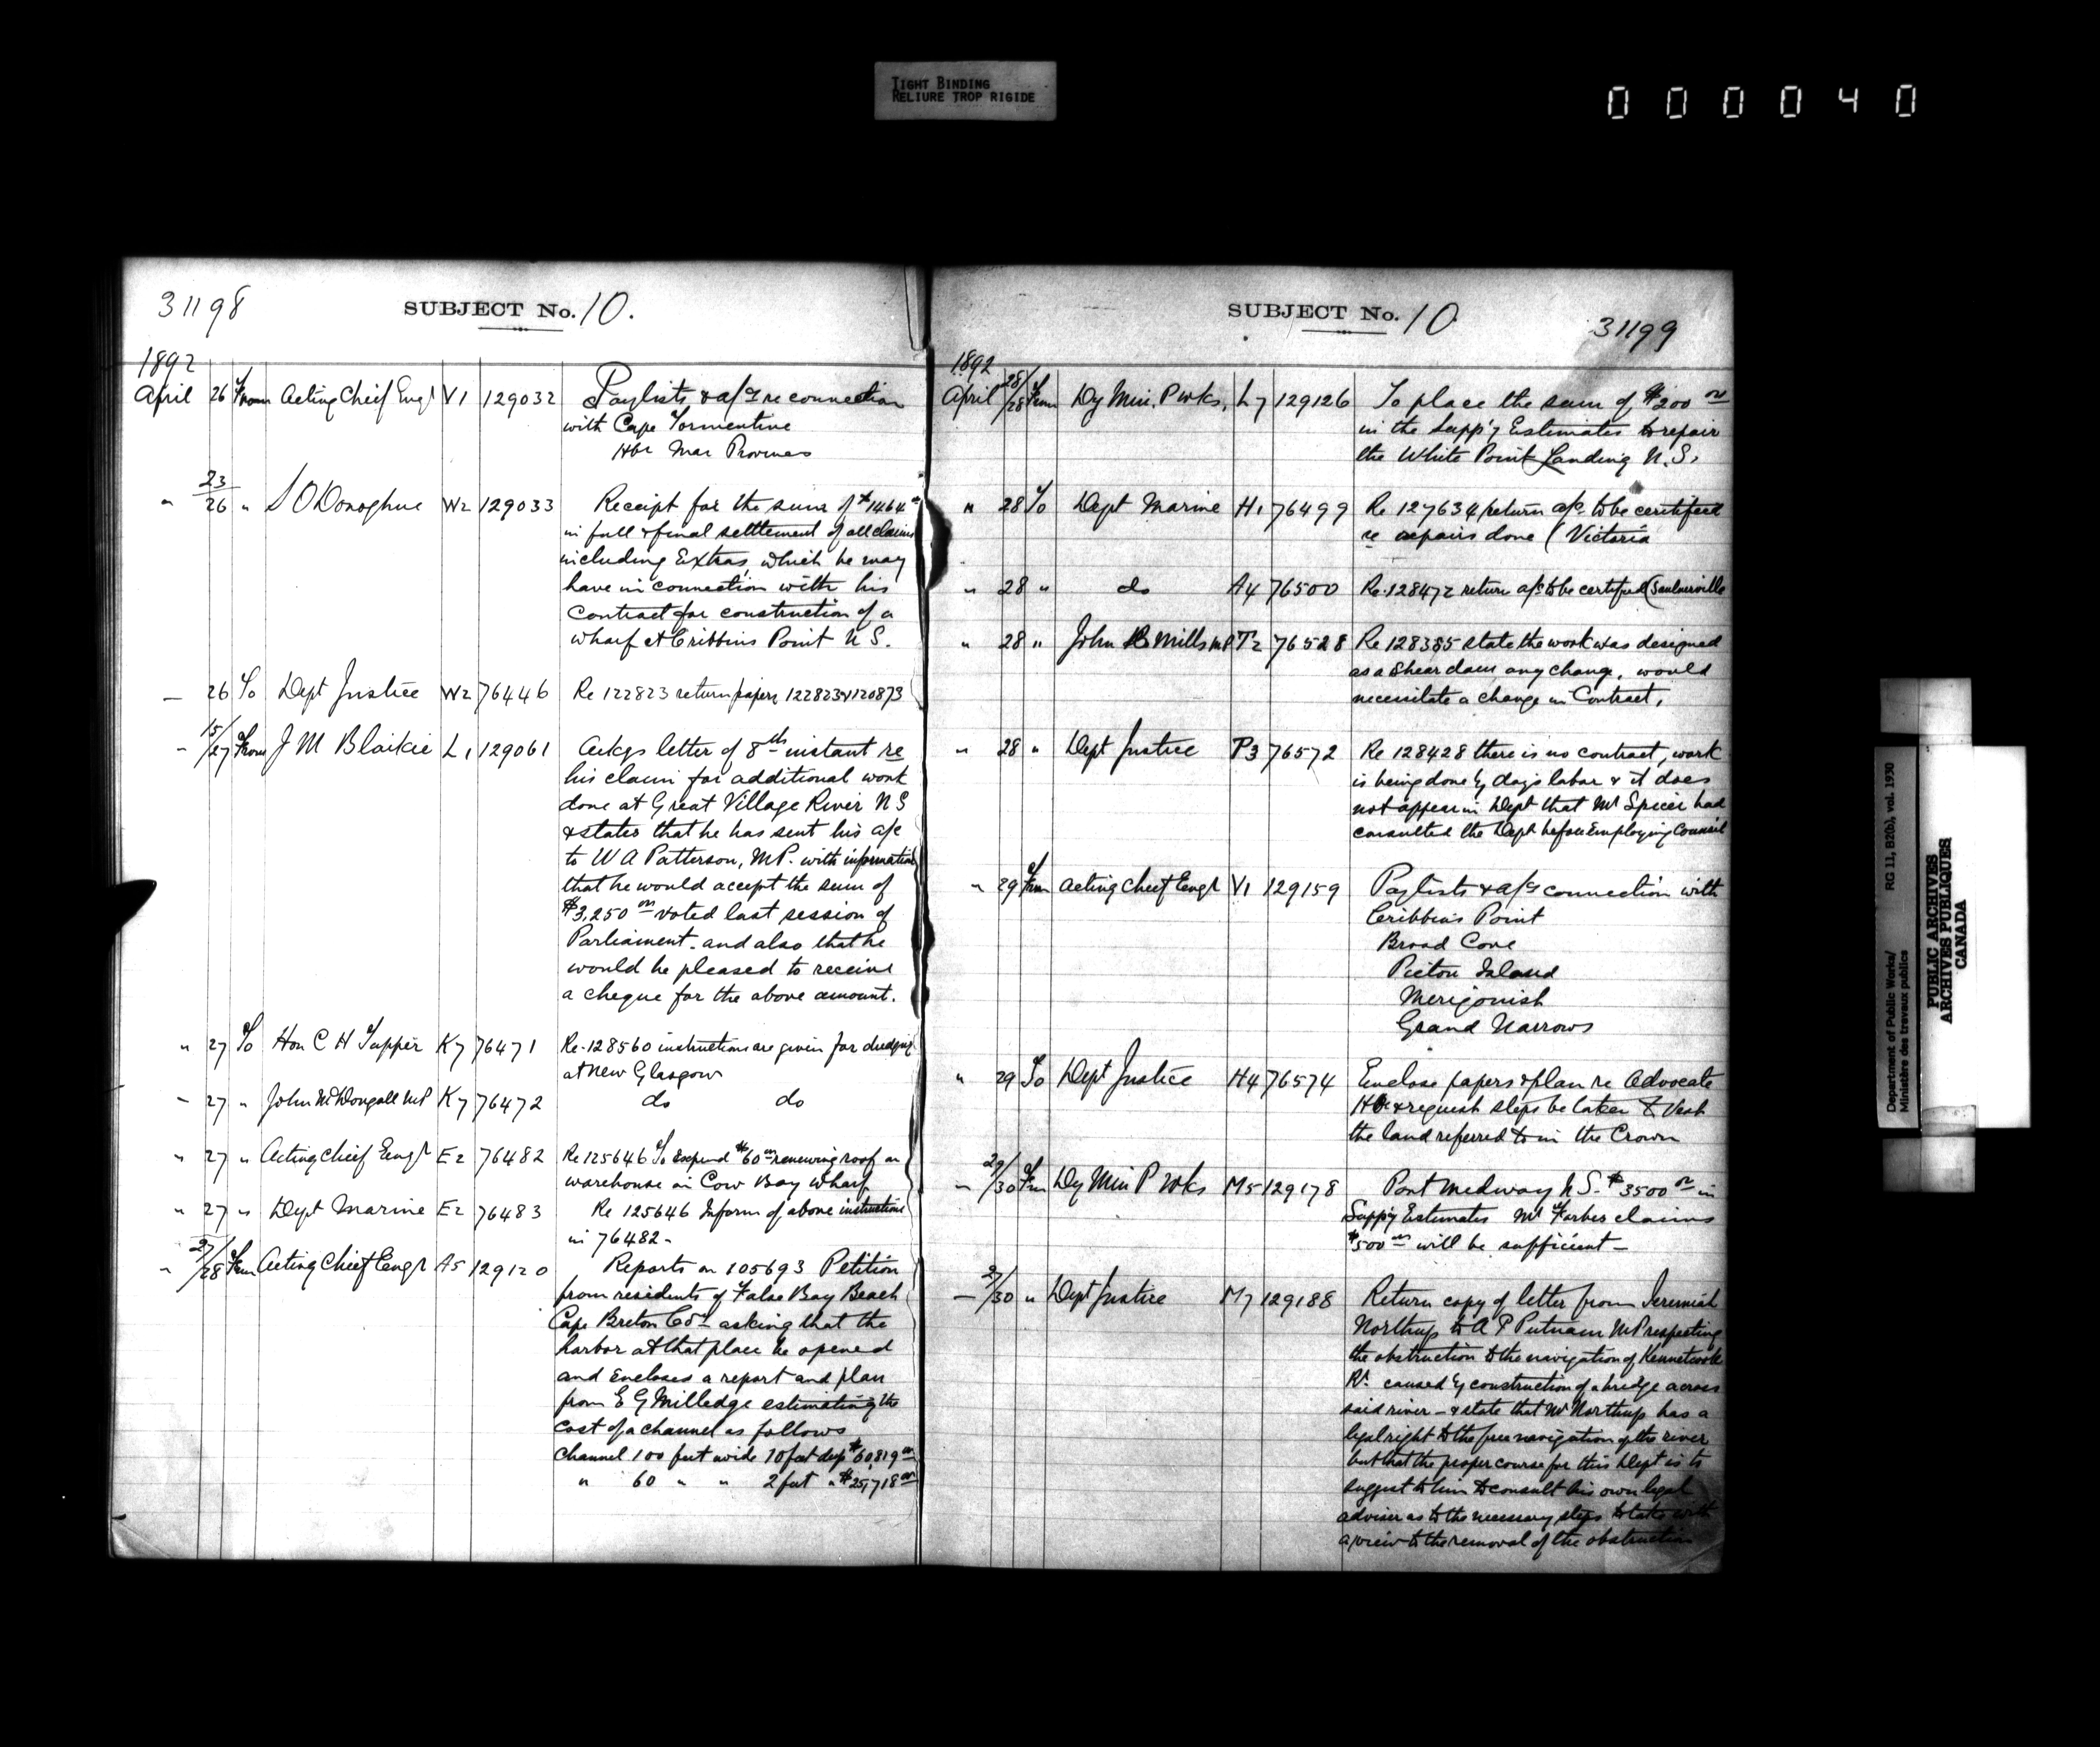 TIGHT BINDING
RELIURE TROP RIGIDE
000040
31198
SUBJECT No. 10.
1892
April 26 From Acting Chief Engr V1 129032 Paylists & a/cs re connection
with Cape Tormentine
Hbr Mar Provinces
" 23/26 " O'Donoghue W2 129033 Receipt for the sum of $1464
in full & final settlement of all claims
including Extras, which he may
have in connection with his
Contract for construction of a
wharf at Cribbins Point N S.
— 26 To Dept Justice W2 76446 Re 122823 return papers 122823 & 120873
" 15/27 From J M Blaikie L1 129061 Ackgs letter of 8th instant re
his claim for additional work
done at Great Village River N S
& states that he has sent his a/c
to W A Patterson, M.P. with information
that he would accept the sum of
$3,250 00 voted last session of
Parliament. and also that he
would be pleased to receive
a cheque for the above amount.
" 27 To Hon C H Tupper K7 76471 Re. 128560 instructions are given for dredging
at New Glasgow
" 27 " John McDougall MP K7 76472 do do
" 27 " Acting Chief Engr E2 76482 Re 125646 To expend $60 00 renewing roof on
warehouse on Cow Bay Wharf
" 27 " Dept Marine E2 76483 Re 125646 Inform of above instructions
in 76482 -
" 27/28 From Acting Chief Engr A5 129120 Reports on 105693 Petition
from residents of False Bay Beach
Cape Breton Co asking that the
harbor at that place be opened
and Encloses a report and plan
from E G Milledge estimating the
cost of a channel as follows
Channel 100 feet wide 10 feet deep $60,819 00
" 60 " " 2 feet " $25,718 00
SUBJECT No. 10
31199
1892
April 28/28 From Dy Min. P Wks, L7 129126 To place the sum of $200 00
in the Supp'y Estimates to repair
the White Point Landing N.S.
" 28 To Dept Marine H1 76499 Re 127634 return a/c to be certified
re repairs done (Victoria
" 28 " do A4 76500 Re. 128472 return a/c to be certified (Saulnierville
" 28 " John B Mills MP T2 76528 Re 128385 state the work was designed
as a Shear dam, any change, would
necessitate a change in Contract,
" 28 " Dept Justice P3 76572 Re 128428 there is no contract, work
is being done by days labor & it does
not appear in Dept that Mr Spicer had
consulted the Dept before Employing Council
" 29 From Acting Chief Engr V1 129159 Paylists & a/cs connection with
Cribbins Point
Broad Cove
Pictou Island
Merigonish
Grand Narrows
" 29 To Dept Justice H4 76574 Enclose papers & plan re Advocate
Hbr & request steps be taken to Vest
the land referred to in the Crown
— 29/30 From Dy Min P Wks M5 129178 Port Medway N S. $3500 00 in
Supp'y Estimates Mr Forbes claims
$500 00 will be sufficient —
— 27/30 " Dept Justice M7 129188 Return copy of letter from Jeremiah
Northup to A P Putnam MP respecting
the obstruction to the navigation of Kennetcook
Rr. caused by construction of a bridge across
said river — & state that Mr Northup has a
legal right to the free navigation of the river
but that the proper course for this Dept is to
suggest to him to consult his own legal
adviser as to the necessary steps to take with
a view to the removal of the obstruction
Department of Public Works/ RG 11, B2(b), vol. 1930
Ministère des travaux publics
PUBLIC ARCHIVES
ARCHIVES PUBLIQUES
CANADA